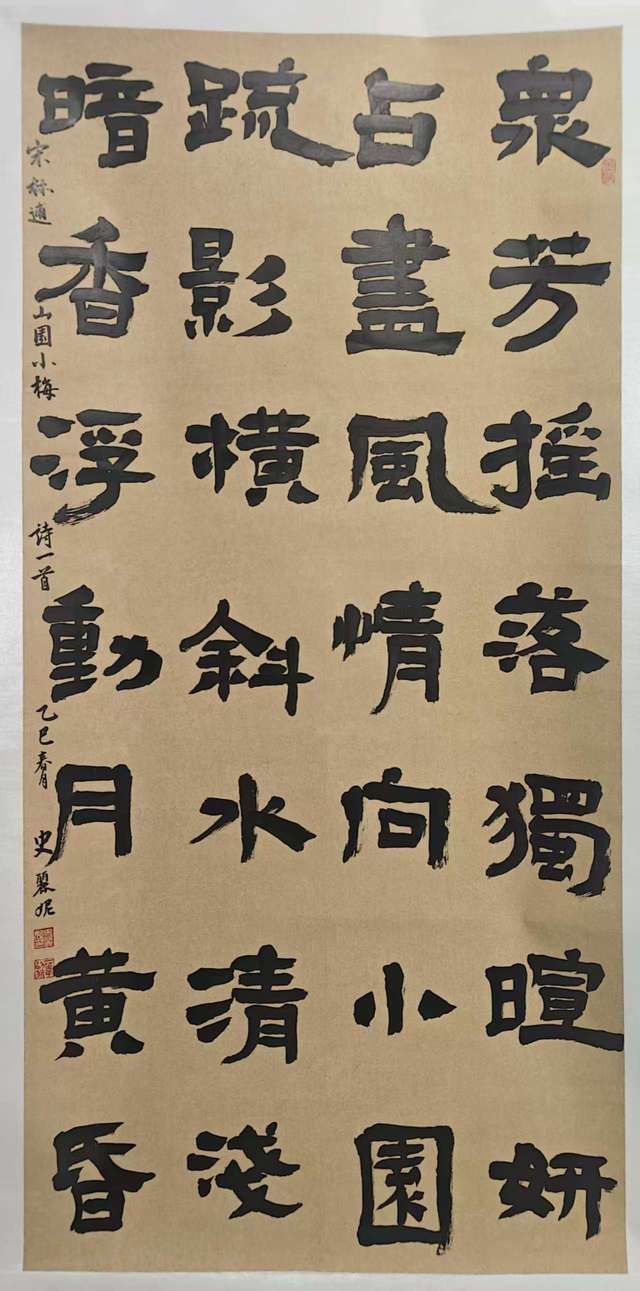 眾芳摇落獨暄妍
占盡風情向小園
疏影橫斜水清淺
暗香浮動月黃昏
宋林逋 山園小梅 詩一首 乙巳春月 史麗妮